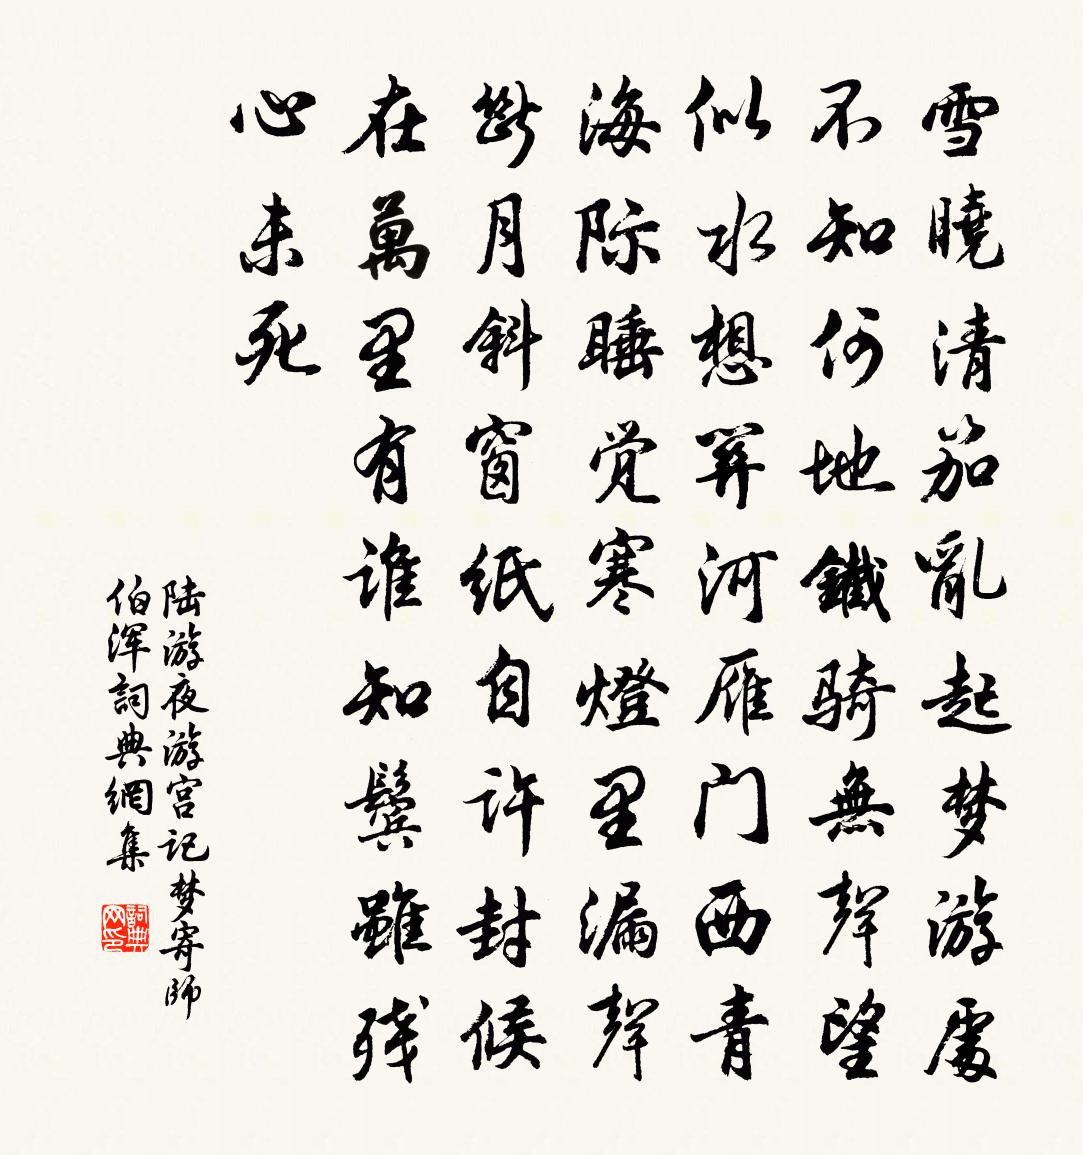 雪曉清笳亂起梦游處
不知何地鐵骑無聲望
似水想関河雁门西青
海际睡觉寒燈里漏聲
断月斜窗纸自许封候
在萬里有谁知鬓雖残
心未死
陆游夜游宫记梦寄師
伯浑詞典網集
詞典网印